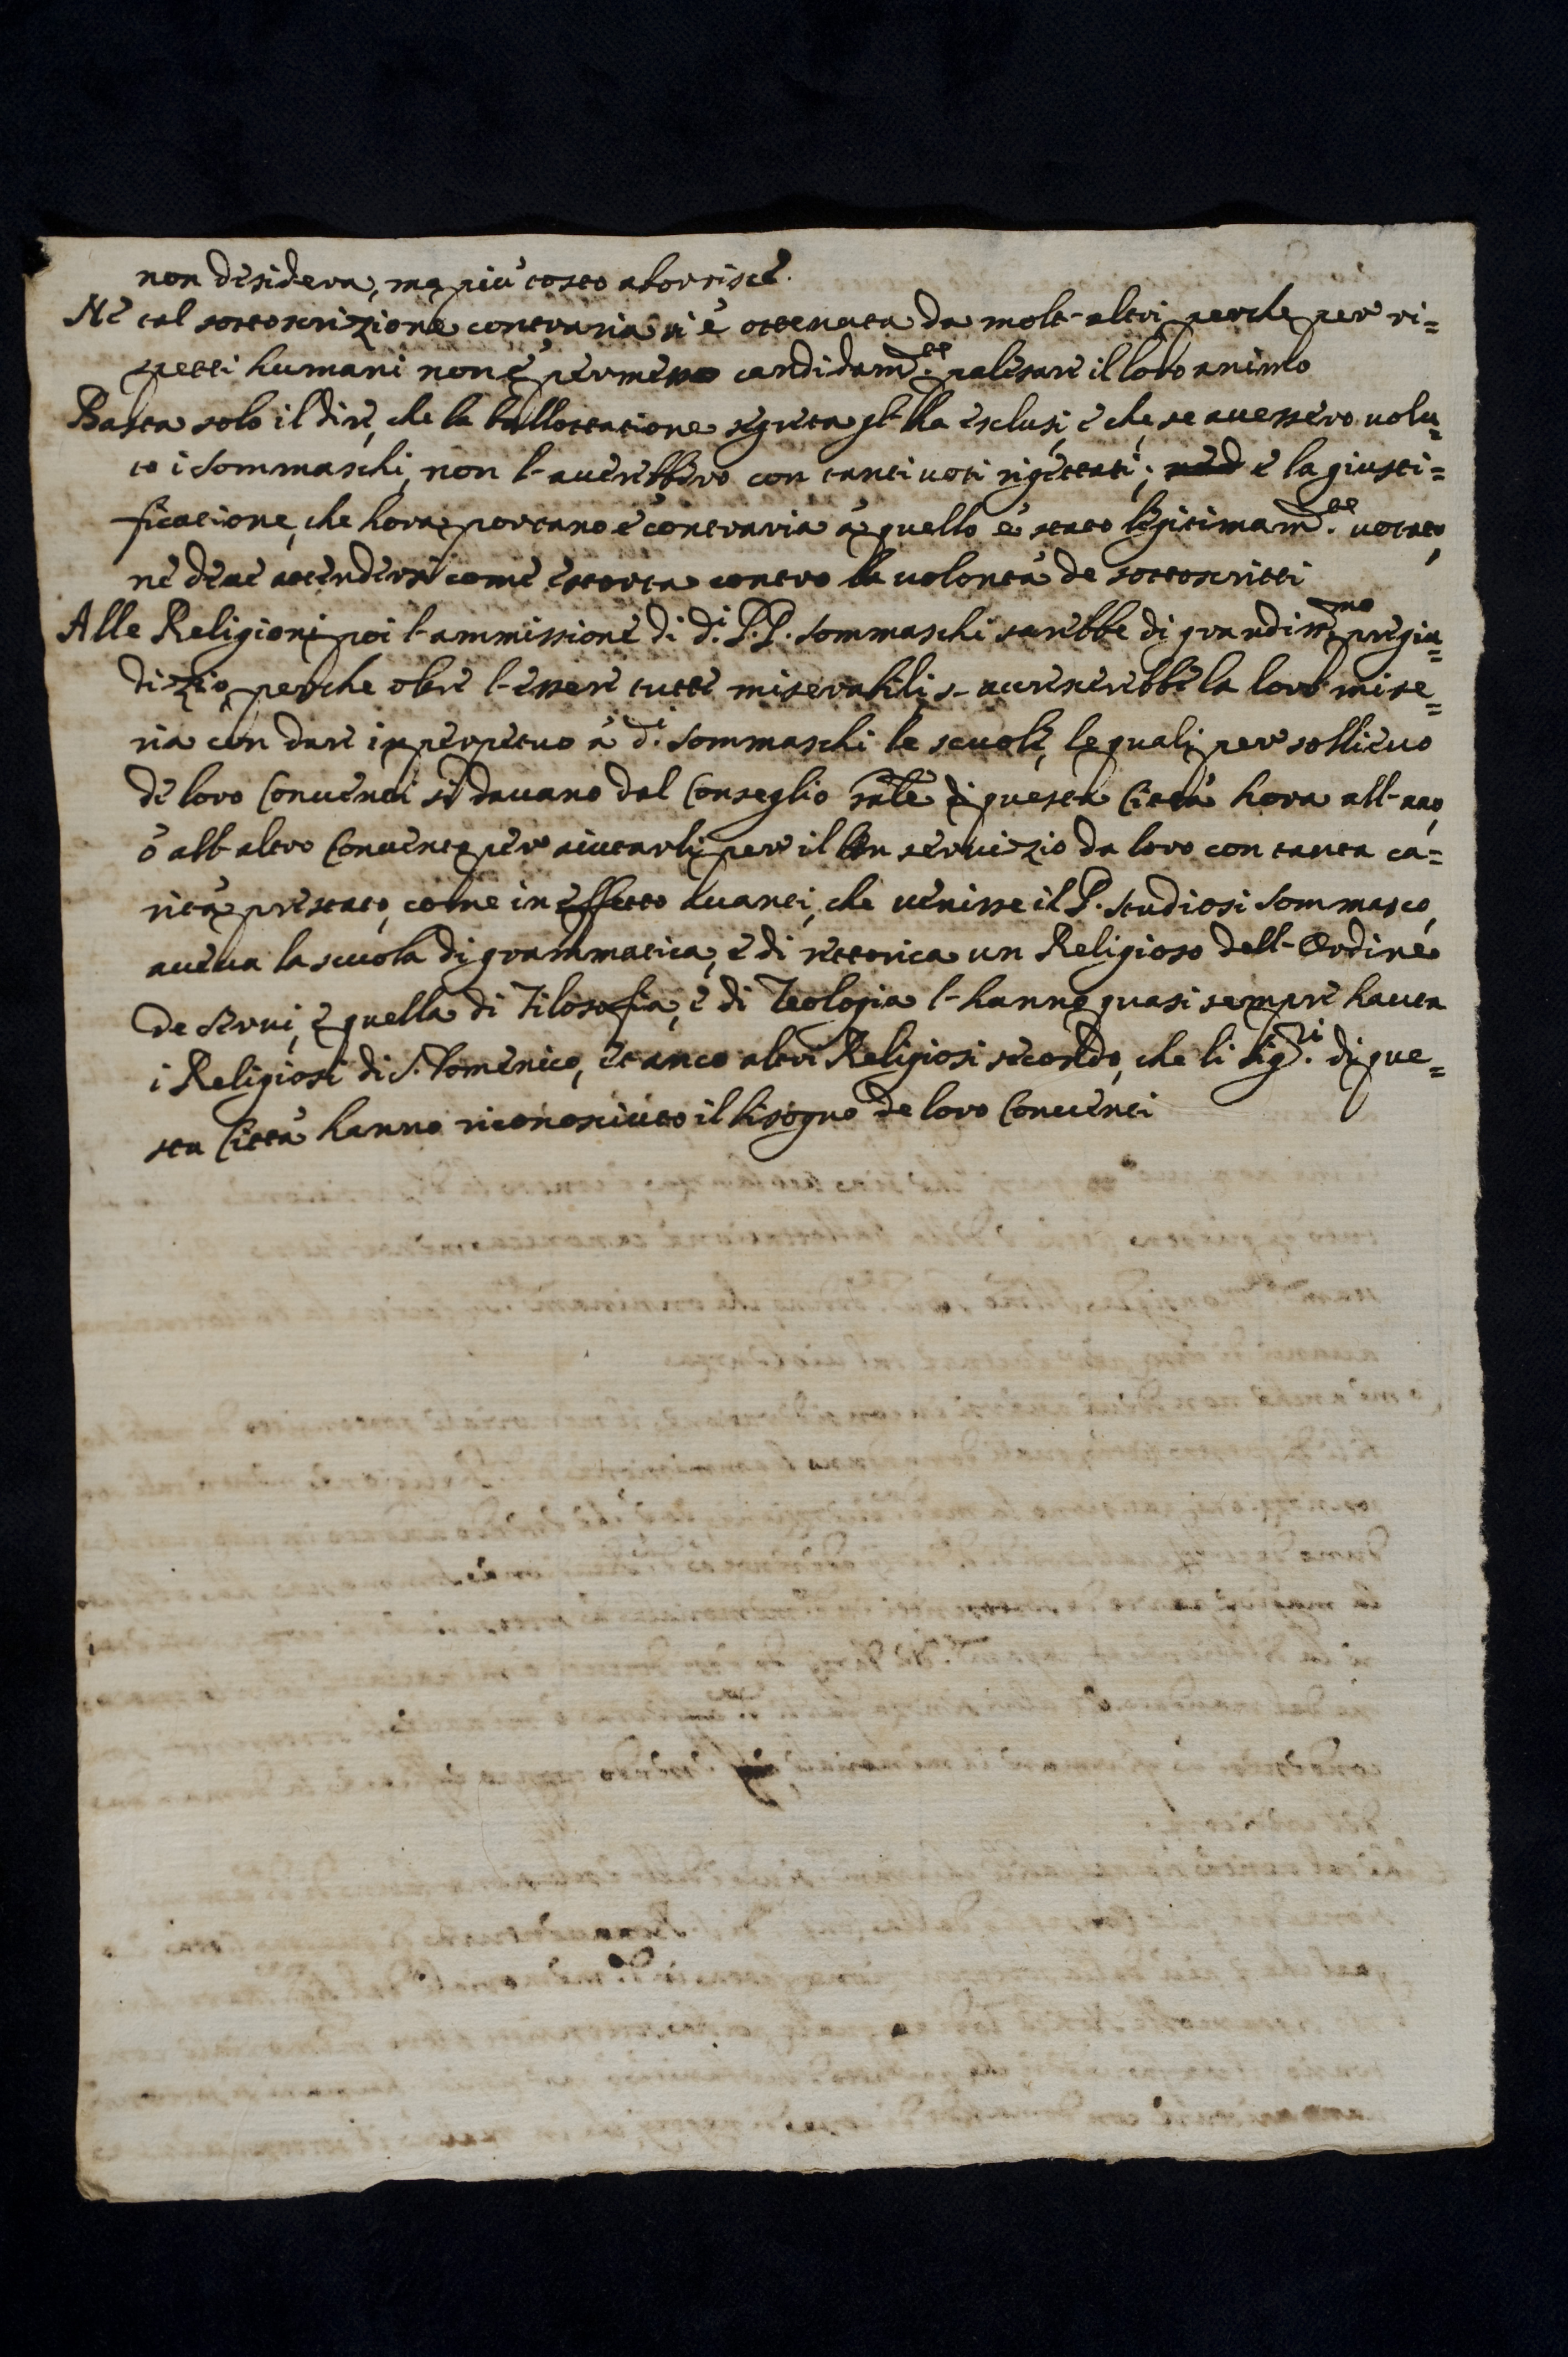 non desidera, ma più tosto aborrisce.
Nè tal sottoscrizione contraria si è ottenuta da molt-altri perche per ri=
spetti humani non è permesso candidam.te palesare il loro animo
Basta solo il dire, che la ballottatione segreta gl-ha esclusi, e che, se avessero volu=
to i Sommaschi, non l-averebbero con tanti voti rigettati; e la giusti=
ficatione, che hora portano è contraria à quello è stato legitimam.te votato,
nè deve attendersi come estorta contro la volontà de sottoscritti
Alle Religioni poi l-ammissione di d.i P.P. Sommaschi sarebbe di grandiss.mo pregiu=
dizio, perche oltre l-essere tutte miserabili, s-accrescerebbe la loro mise=
ria con dare in perpetuo à d.i Sommaschi le scuole, le quali per sollievo
de loro Conventi si davano dal Conseglio gnle di questa Città hora all-uno,
ò all-altro Convento per aiutarli per il bon servizio da loro con tanta ca=
rità prestato, come in effetto avanti, che venisse il P. Studiosi Sommasco,
aveva la scuola di grammatica, e di rettorica un Religioso dell-Ordine
de Servi, e quella di Filosofia, e di Teologia l-hanno quasi sempre havuta
i Religiosi di S. Domenico, et anco altri Religiosi secondo, che li Sig.ri di que=
sta Città hanno riconosciuto il bisogno de loro Conventi